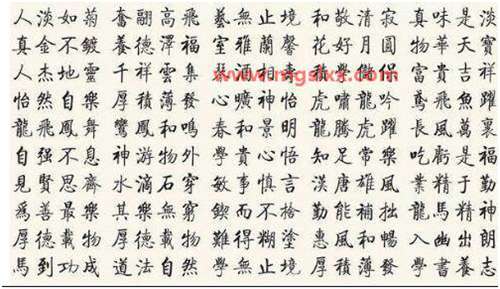 人淡如菊 奮翮高飛 藝無止境 和敬清寂 真味是淡
真金不鍍 養德澤福 室雅蘭馨 花好月圓 物華天寶
人杰地靈 千祥雲集 酒相 學 侶 富貴吉祥
怡然自樂 厚積薄發 心曠神怡 虎嘯龍吟 鳶飛魚躍
龍飛鳳舞 鸞鳳和鳴 春和景明 龍騰虎躍 長風萬裏
自强不息 神游物外 學貴心悟 知足常樂 吃虧是福
見賢思齊 水滴石穿 敏事慎言 漢唐雄風 業精于勤
爲善最樂 其樂無窮 鍥而不捨 勤能補拙 龍馬精神
厚德載物 厚德載物 難得糊塗 惠風和暢 入幽出朗
馬到功成 道法自然 學無止境 厚積薄發 學書養志
www.mgslxx.com